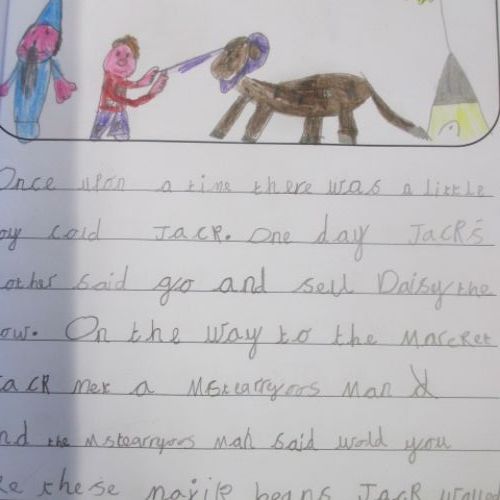 Once upon a time there was a little
oy cald JACR. One day JacRs
other said go and sell Daisy the
ow. On the way to the Marcret
acR met a Mstearryoos Man
nd the Mstearryoos Man said wold you
ke these majik beans Jack